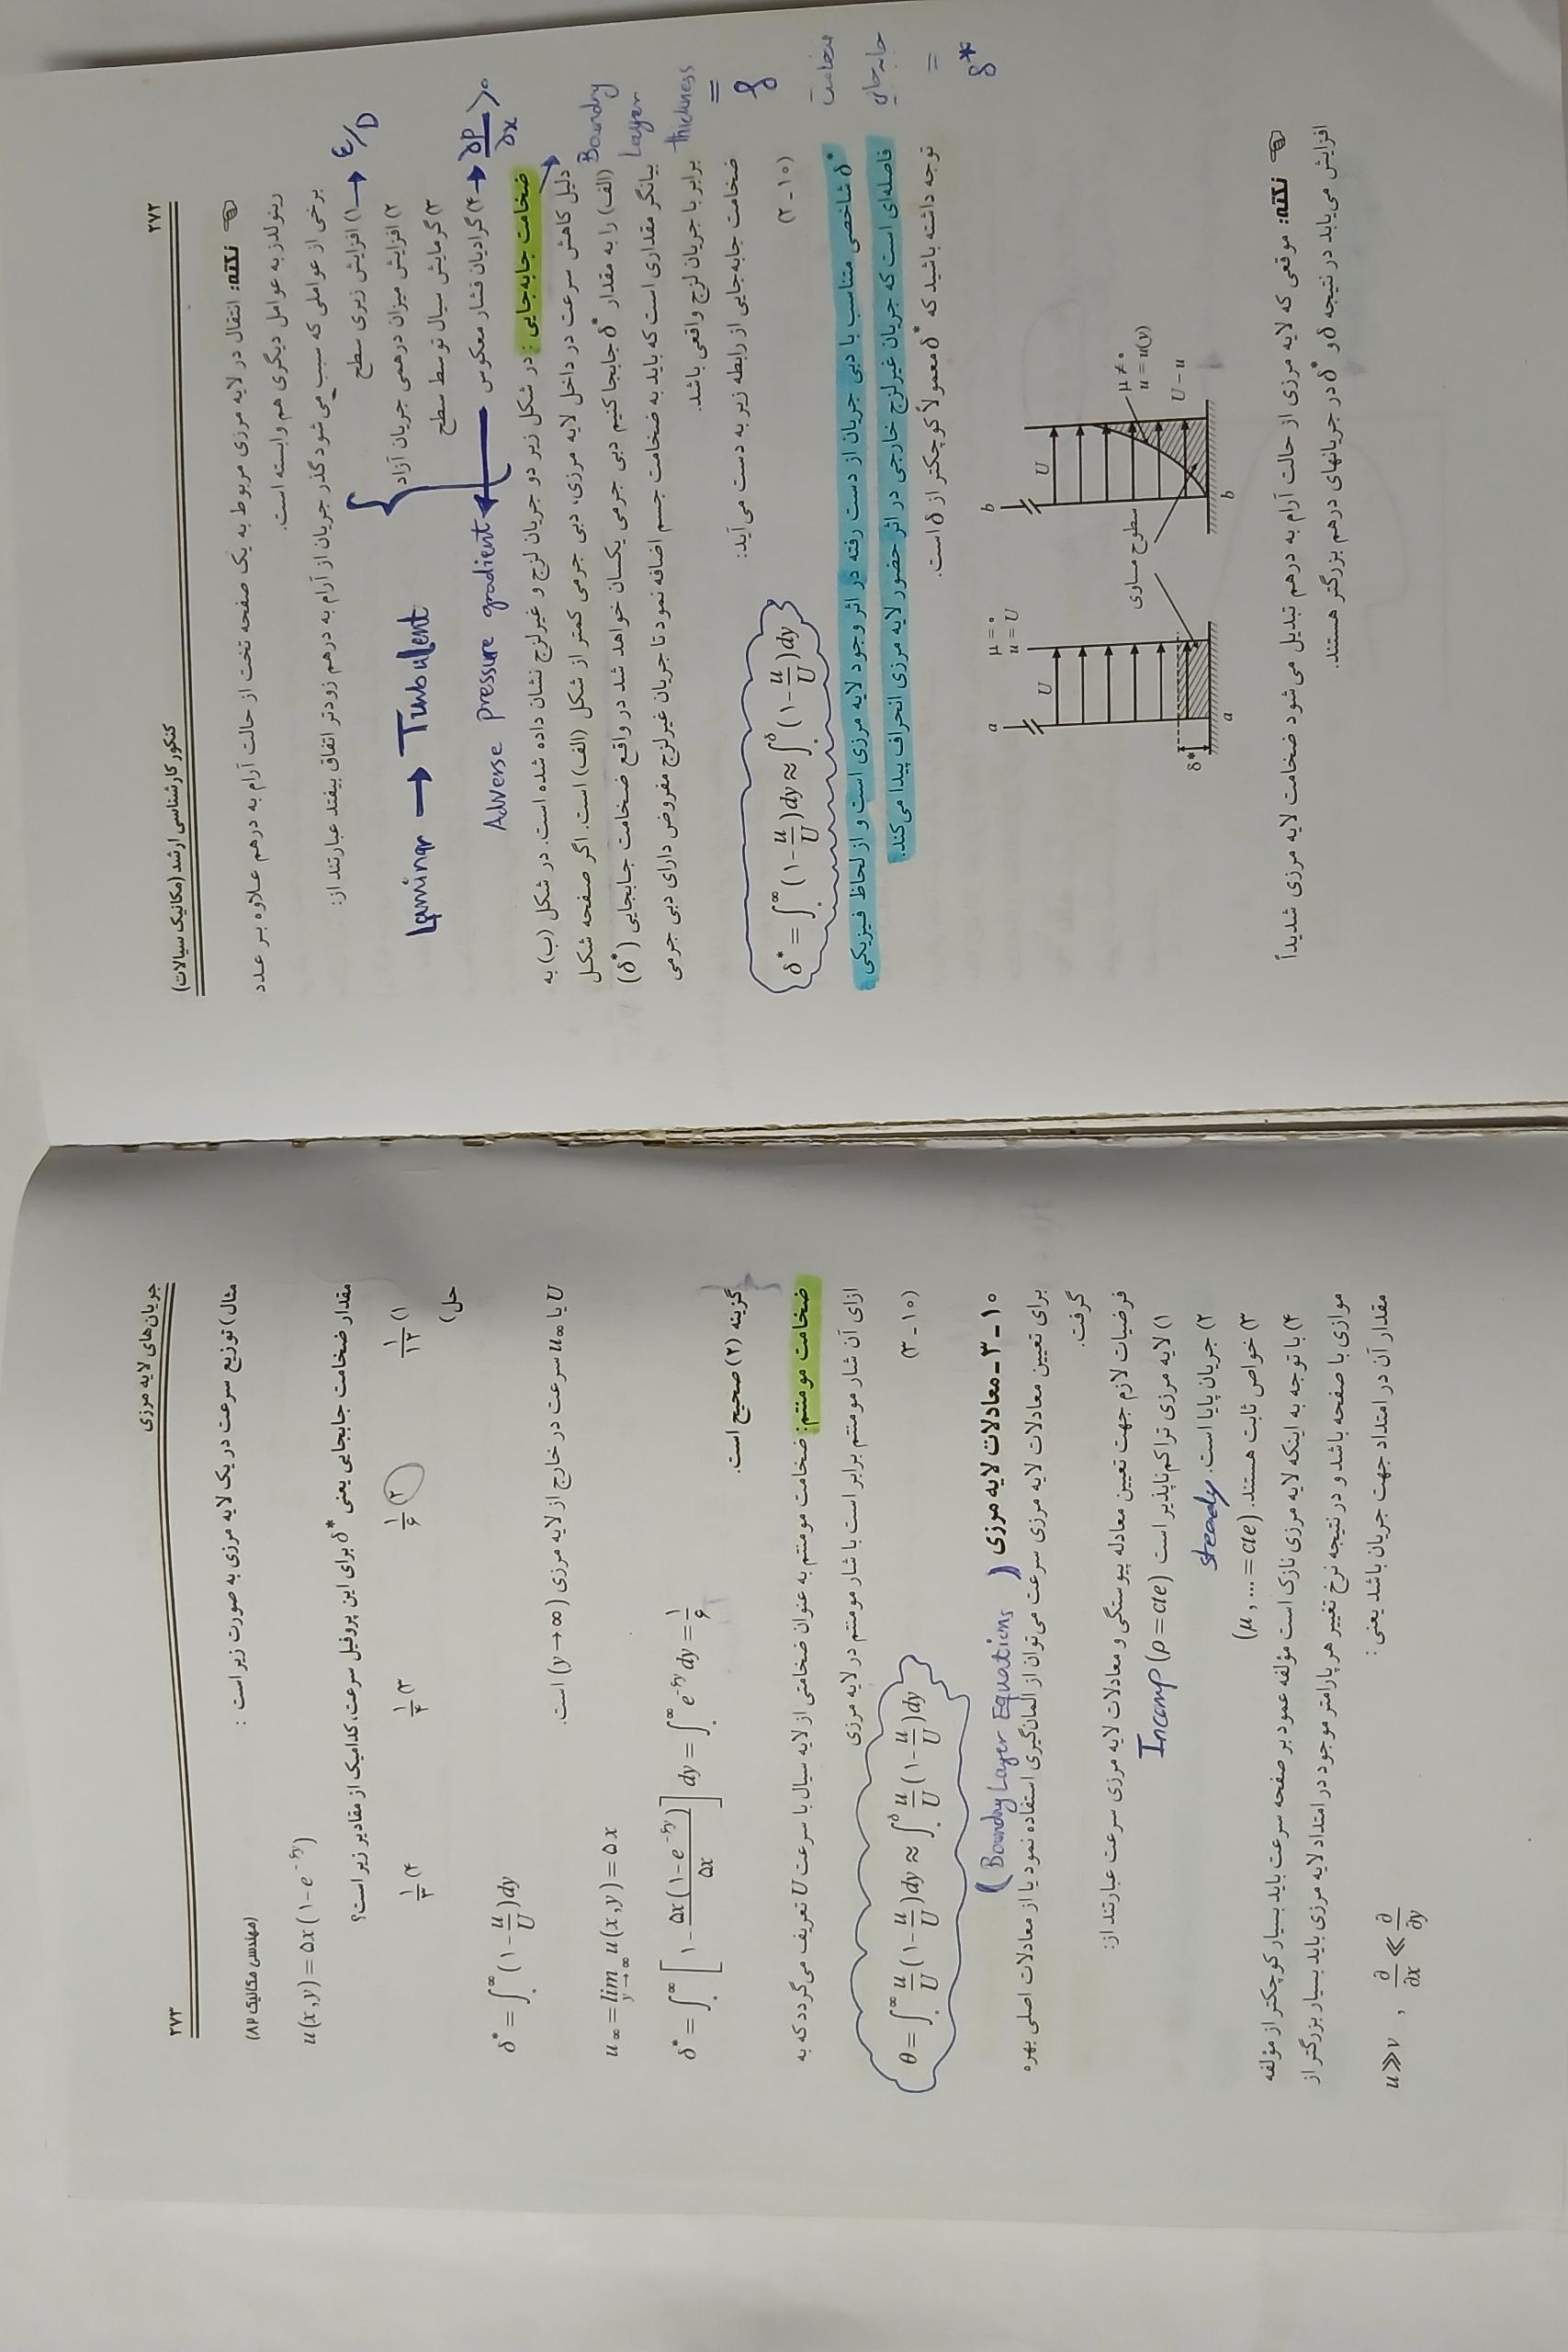 ۲۷۲
کنکور کارشناسی ارشد (مکانیک سیالات)
نکته: انتقال در لایه مرزی مربوط به یک صفحه تخت از حالت آرام به درهم علاوه بر عدد
رینولدز به عوامل دیگری هم وابسته است.
برخی از عواملی که سبب می‌شود گذر جریان از آرام به درهم زودتر اتفاق بیفتد عبارتند از:
۱) افزایش زبری سطح → ε/D
۲) افزایش میزان درهمی جریان آزاد
Laminar → Turbulent
۳) گرمایش سیال توسط سطح
۴) گرادیان فشار معکوس → ∂P/∂x > ۰
Adverse pressure gradient
ضخامت جابه‌جایی: در شکل زیر دو جریان لزج و غیرلزج نشان داده شده است. در شکل (ب) به
دلیل کاهش سرعت در داخل لایه مرزی، دبی جرمی کمتر از شکل (الف) است. اگر صفحه شکل
(الف) را به مقدار δ* جابجا کنیم دبی جرمی یکسان خواهد شد در واقع ضخامت جابجایی (δ*)
بیانگر مقداری است که باید به ضخامت جسم اضافه نمود تا جریان غیرلزج مفروض دارای دبی جرمی
برابر با جریان لزج واقعی باشد.
Boundry
Layer
thickness
=
δ
ضخامت جابه‌جایی از رابطه زیر به دست می‌آید:
δ* = ∫₀^∞ (1 - u/U)dy ≈ ∫₀^δ (1 - u/U)dy
(۲-۱۰)
ضخامت
جابه‌جایی
=
δ*
δ* شاخصی متناسب با دبی جریان از دست رفته در اثر وجود لایه مرزی است و از لحاظ فیزیکی
فاصله‌ای است که جریان غیرلزج خارجی در اثر حضور لایه مرزی انحراف پیدا می‌کند.
توجه داشته باشید که δ* معمولاً کوچکتر از δ است.
a
U
μ = ۰
u = U
δ*
a
سطوح مساوی
b
U
μ ≠ ۰
u = u(y)
U - u
b
نکته: موقعی که لایه مرزی از حالت آرام به درهم تبدیل می‌شود ضخامت لایه مرزی شدیداً
افزایش می‌یابد در نتیجه δ و δ* در جریانهای درهم بزرگتر هستند.
جریان‌های لایه مرزی
۲۷۳
مثال) توزیع سرعت در یک لایه مرزی به صورت زیر است:
(مهندسی مکانیک ۸۲)
u(x,y) = ۵x(1-e^{-۶y})
مقدار ضخامت جابجایی یعنی δ* برای این پروفیل سرعت، کدامیک از مقادیر زیر است؟
۱) ۱/۱۲
۲) ۱/۶
۳) ۱/۴
۴) ۱/۳
حل)
δ* = ∫₀^∞ (1 - u/U)dy
U یا u∞ سرعت در خارج از لایه مرزی (y→∞) است.
u∞ = lim_{y→∞} u(x,y) = ۵x
δ* = ∫₀^∞ [1 - ۵x(1-e^{-۶y})/۵x] dy = ∫₀^∞ e^{-۶y} dy = ۱/۶
گزینه (۲) صحیح است.
ضخامت مومنتم: ضخامت مومنتم به عنوان ضخامتی از لایه سیال با سرعت U تعریف می‌گردد که به
ازای آن شار مومنتم برابر است با شار مومنتم در لایه مرزی
θ = ∫₀^∞ u/U (1 - u/U)dy ≈ ∫₀^δ u/U (1 - u/U)dy
(۳-۱۰)
۱۰-۳-معادلات لایه مرزی (Boundry Layer Equations)
برای تعیین معادلات لایه مرزی سرعت می‌توان از المان‌گیری استفاده نمود یا از معادلات اصلی بهره
گرفت.
فرضیات لازم جهت تعیین معادله پیوستگی و معادلات لایه مرزی سرعت عبارتند از:
۱) لایه مرزی تراکم‌ناپذیر است (ρ = cte) Incomp
۲) جریان پایا است. steady
۳) خواص ثابت هستند. (μ,... = cte)
۴) با توجه به اینکه لایه مرزی نازک است مؤلفه عمود بر صفحه سرعت باید بسیار کوچکتر از مؤلفه
موازی با صفحه باشد و در نتیجه نرخ تغییر هر پارامتر موجود در امتداد لایه مرزی باید بسیار بزرگتر از
مقدار آن در امتداد جهت جریان باشد یعنی:
u ≫ v , ∂/∂x ≪ ∂/∂y